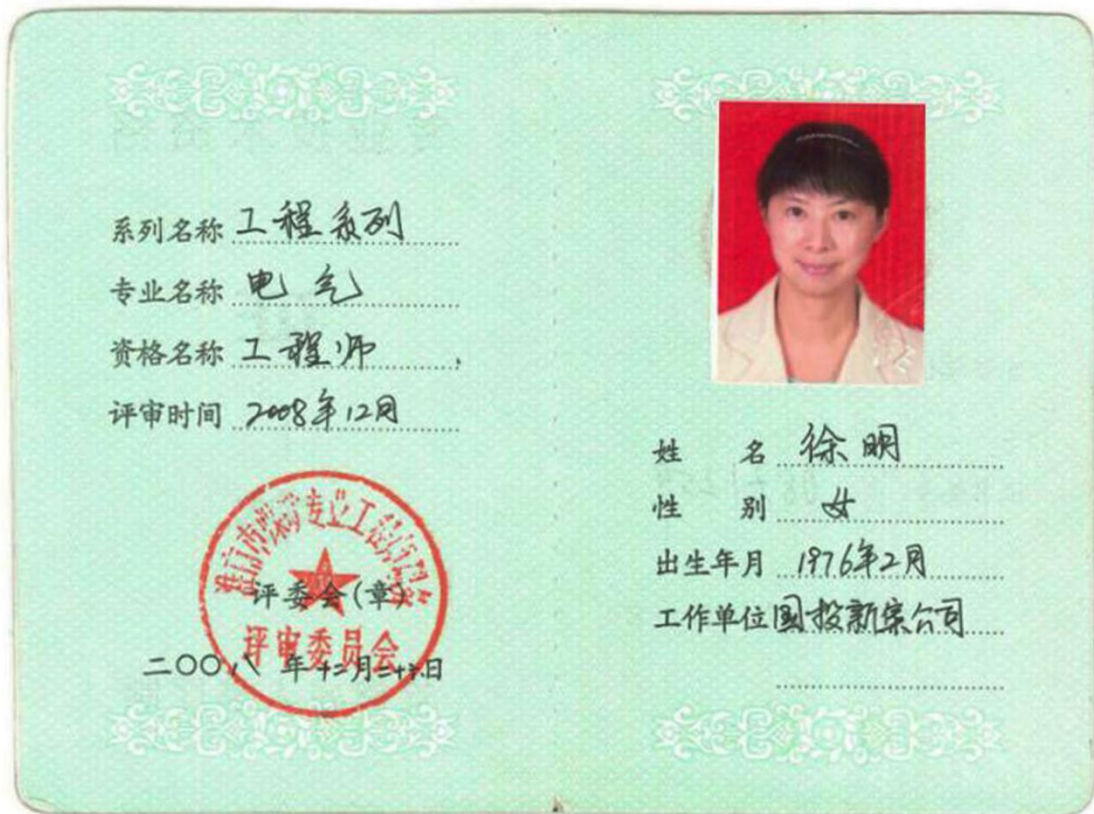 系列名称 工程系列
专业名称 电气
资格名称 工程师
评审时间 2008年12月
专业工程师
评委会(章)
评审委员会
二〇〇八 年十二月二十六日
姓 名 徐明
性 别 女
出生年月 1976年2月
工作单位 国投新集公司